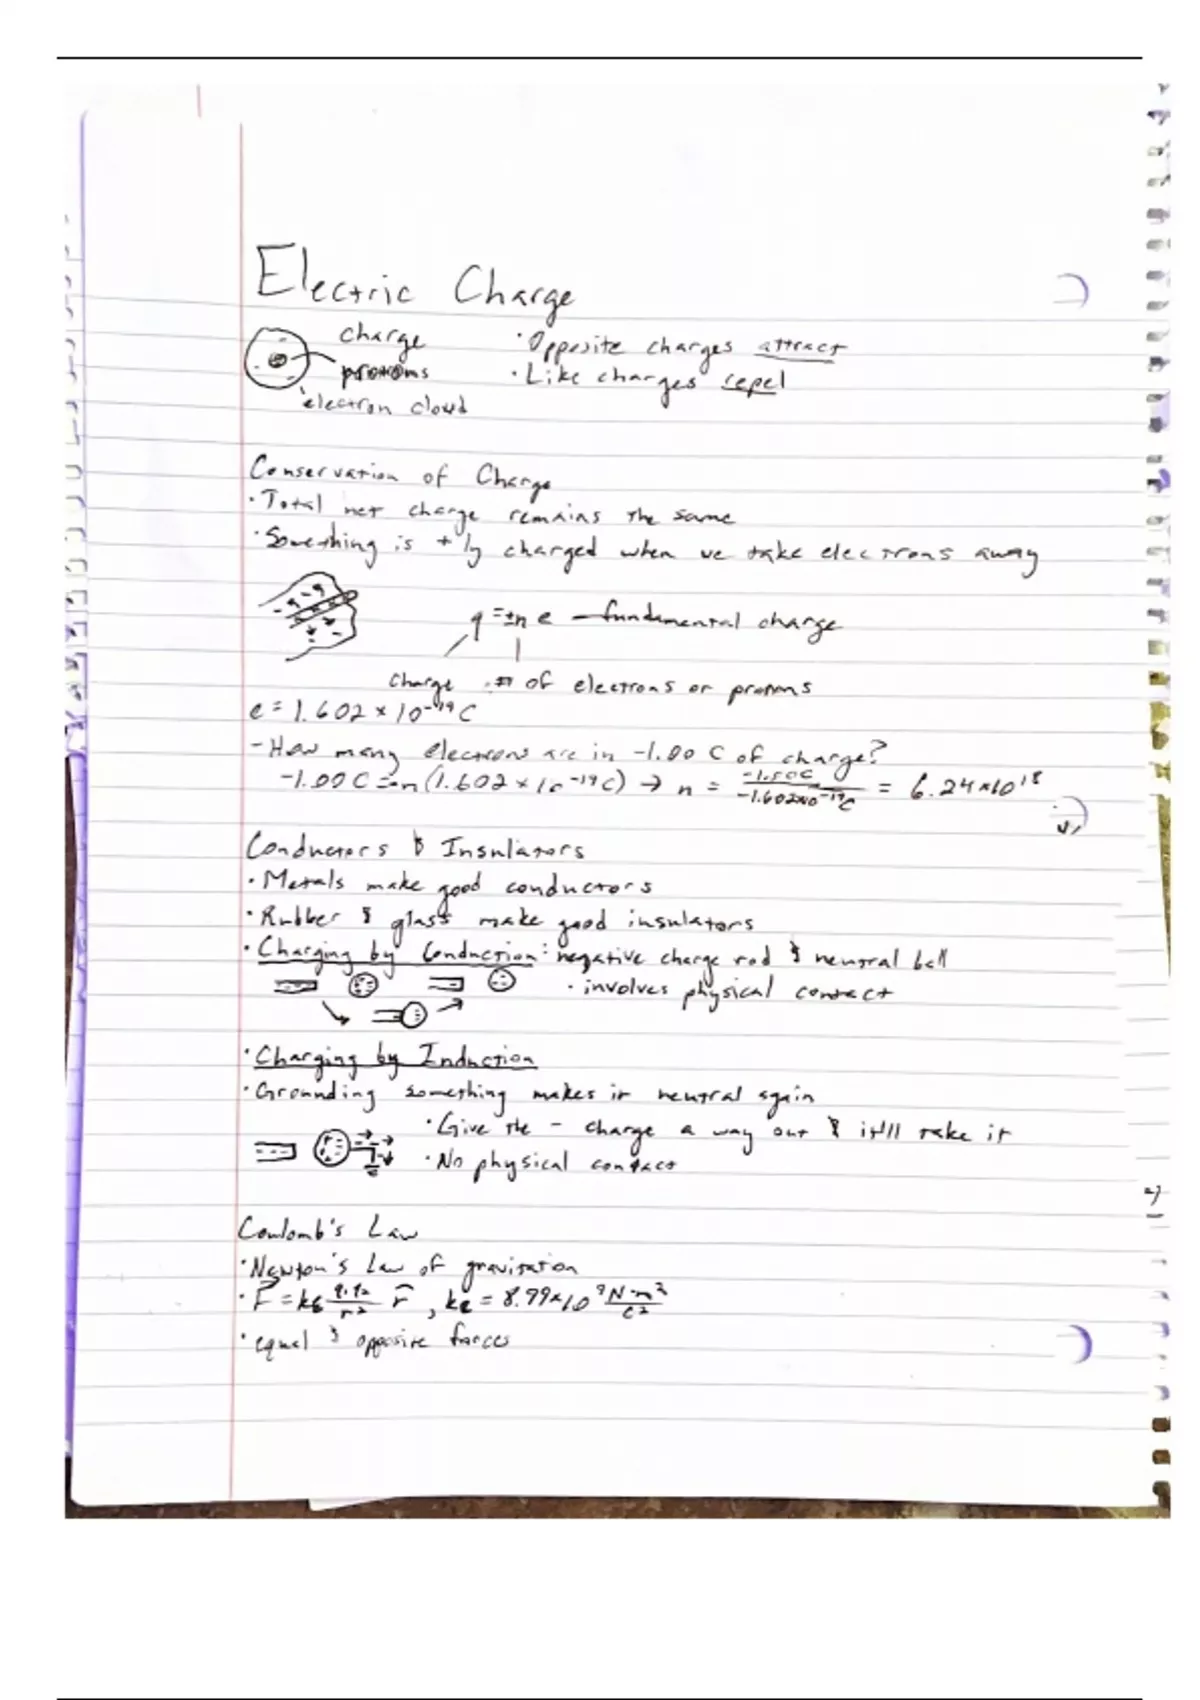 Electric Charge
charge
protons
electron cloud
· Opposite charges attract
· Like charges repel
Conservation of Charge
· Total net charge remains the same
· Something is + 'ly charged when we take electrons away
q = ±n e — fundamental charge
charge # of electrons or protons
e = 1.602 × 10⁻¹⁹ C
- How many electrons are in -1.00 C of charge?
-1.00 C = -n (1.602 × 10⁻¹⁹ C) → n = -1.50C / -1.602×10⁻¹⁹C = 6.24×10¹⁸
Conductors & Insulators
· Metals make good conductors
· Rubber & glass make good insulators
· Charging by Conduction: negative charge rod & neutral ball
· involves physical contact
· Charging by Induction
· Grounding something makes it neutral again
· Give the - charge a way out & it'll take it
· No physical contact
Coulomb's Law
· Newton's Law of gravitation
· F = ke q₁q₂ / r² r̂ , ke = 8.99×10⁹ N·m² / C²
· equal & opposite forces